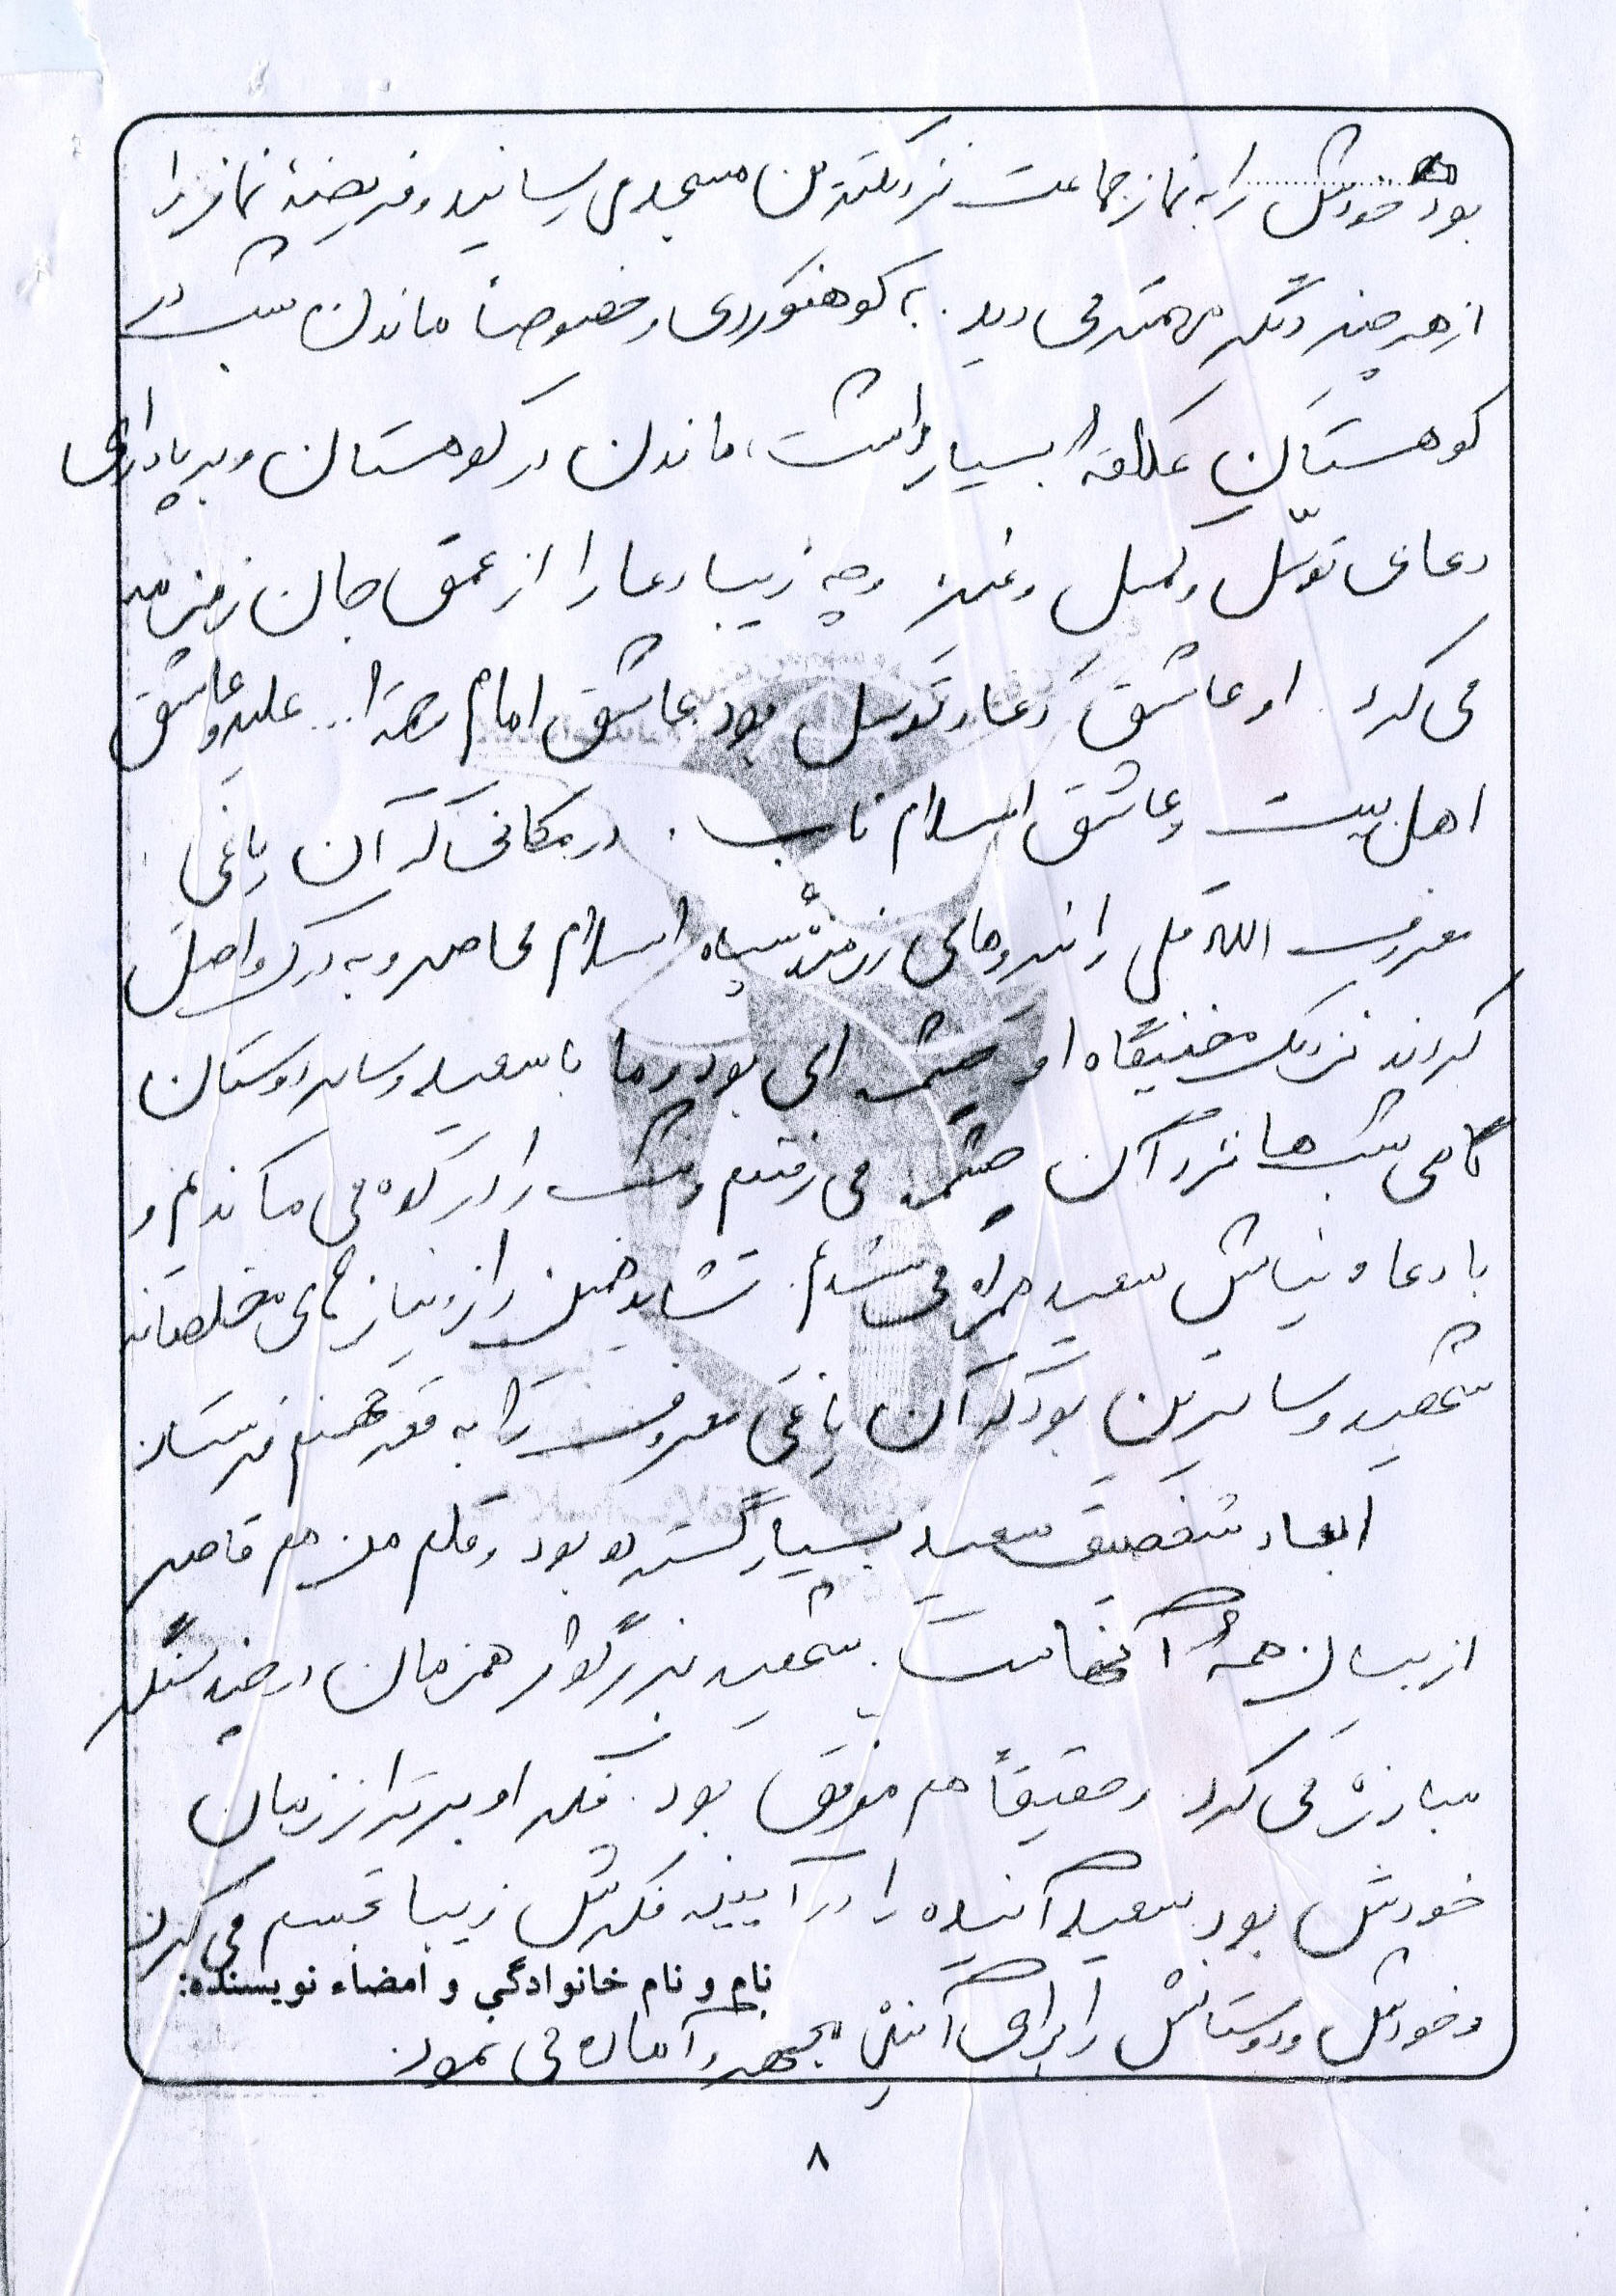 بود خودش را به نماز جماعت نزدیکترین مسجد می رسانید و فریضۀ نماز را
از هر چیز دیگر مهمتر می دید. به کوهنوردی و خصوصاً ماندن شب در
کوهستان علاقه بسیار داشت، ماندن در کوهستان و برپاداری
دعای توسّل و کمیل و غیره و چه زیبا دعا را از عمق جان زمزمه
می کرد. او عاشق دعا و توسل بود عاشق امام ره ا... علیه و عاشق
اهل بیت و عاشق اسلام ناب. در مکانی که آن یاغی
معروف الله قلی را نیروهای رزمنده سپاه اسلام محاصره و به درک واصل
کردند نزدیک مخفیگاه او چشمه ای بود و ما با سعید و سایر دوستان
گاهی شب ها نزد آن چشمه می رفتیم و شب را در کوه می ماندیم و
با دعا و نیایش سعید همراه می شدیم. شاید همین راز و نیازهای مخلصانه
شهید و سایرین بود که آن یاغی معروف را به قعر جهنم فرستاد
ابعاد شخصیتی سعید بسیار گسترده بود و قلم من هم قاصر
از بیان همۀ آنهاست. شهید بزرگوار همزمان در چند سنگر
مبارزه می کرد و حقیقتاً هم موفق بود. فکر او برتر از زمان
خودش بود سعید آینده را در آیینه فکرش زیبا تجسم می کرد
نام و نام خانوادگي و امضاء نويسنده:
و خودش و دوستانش را برای آینده مجهز و آماده می نمود.
۸